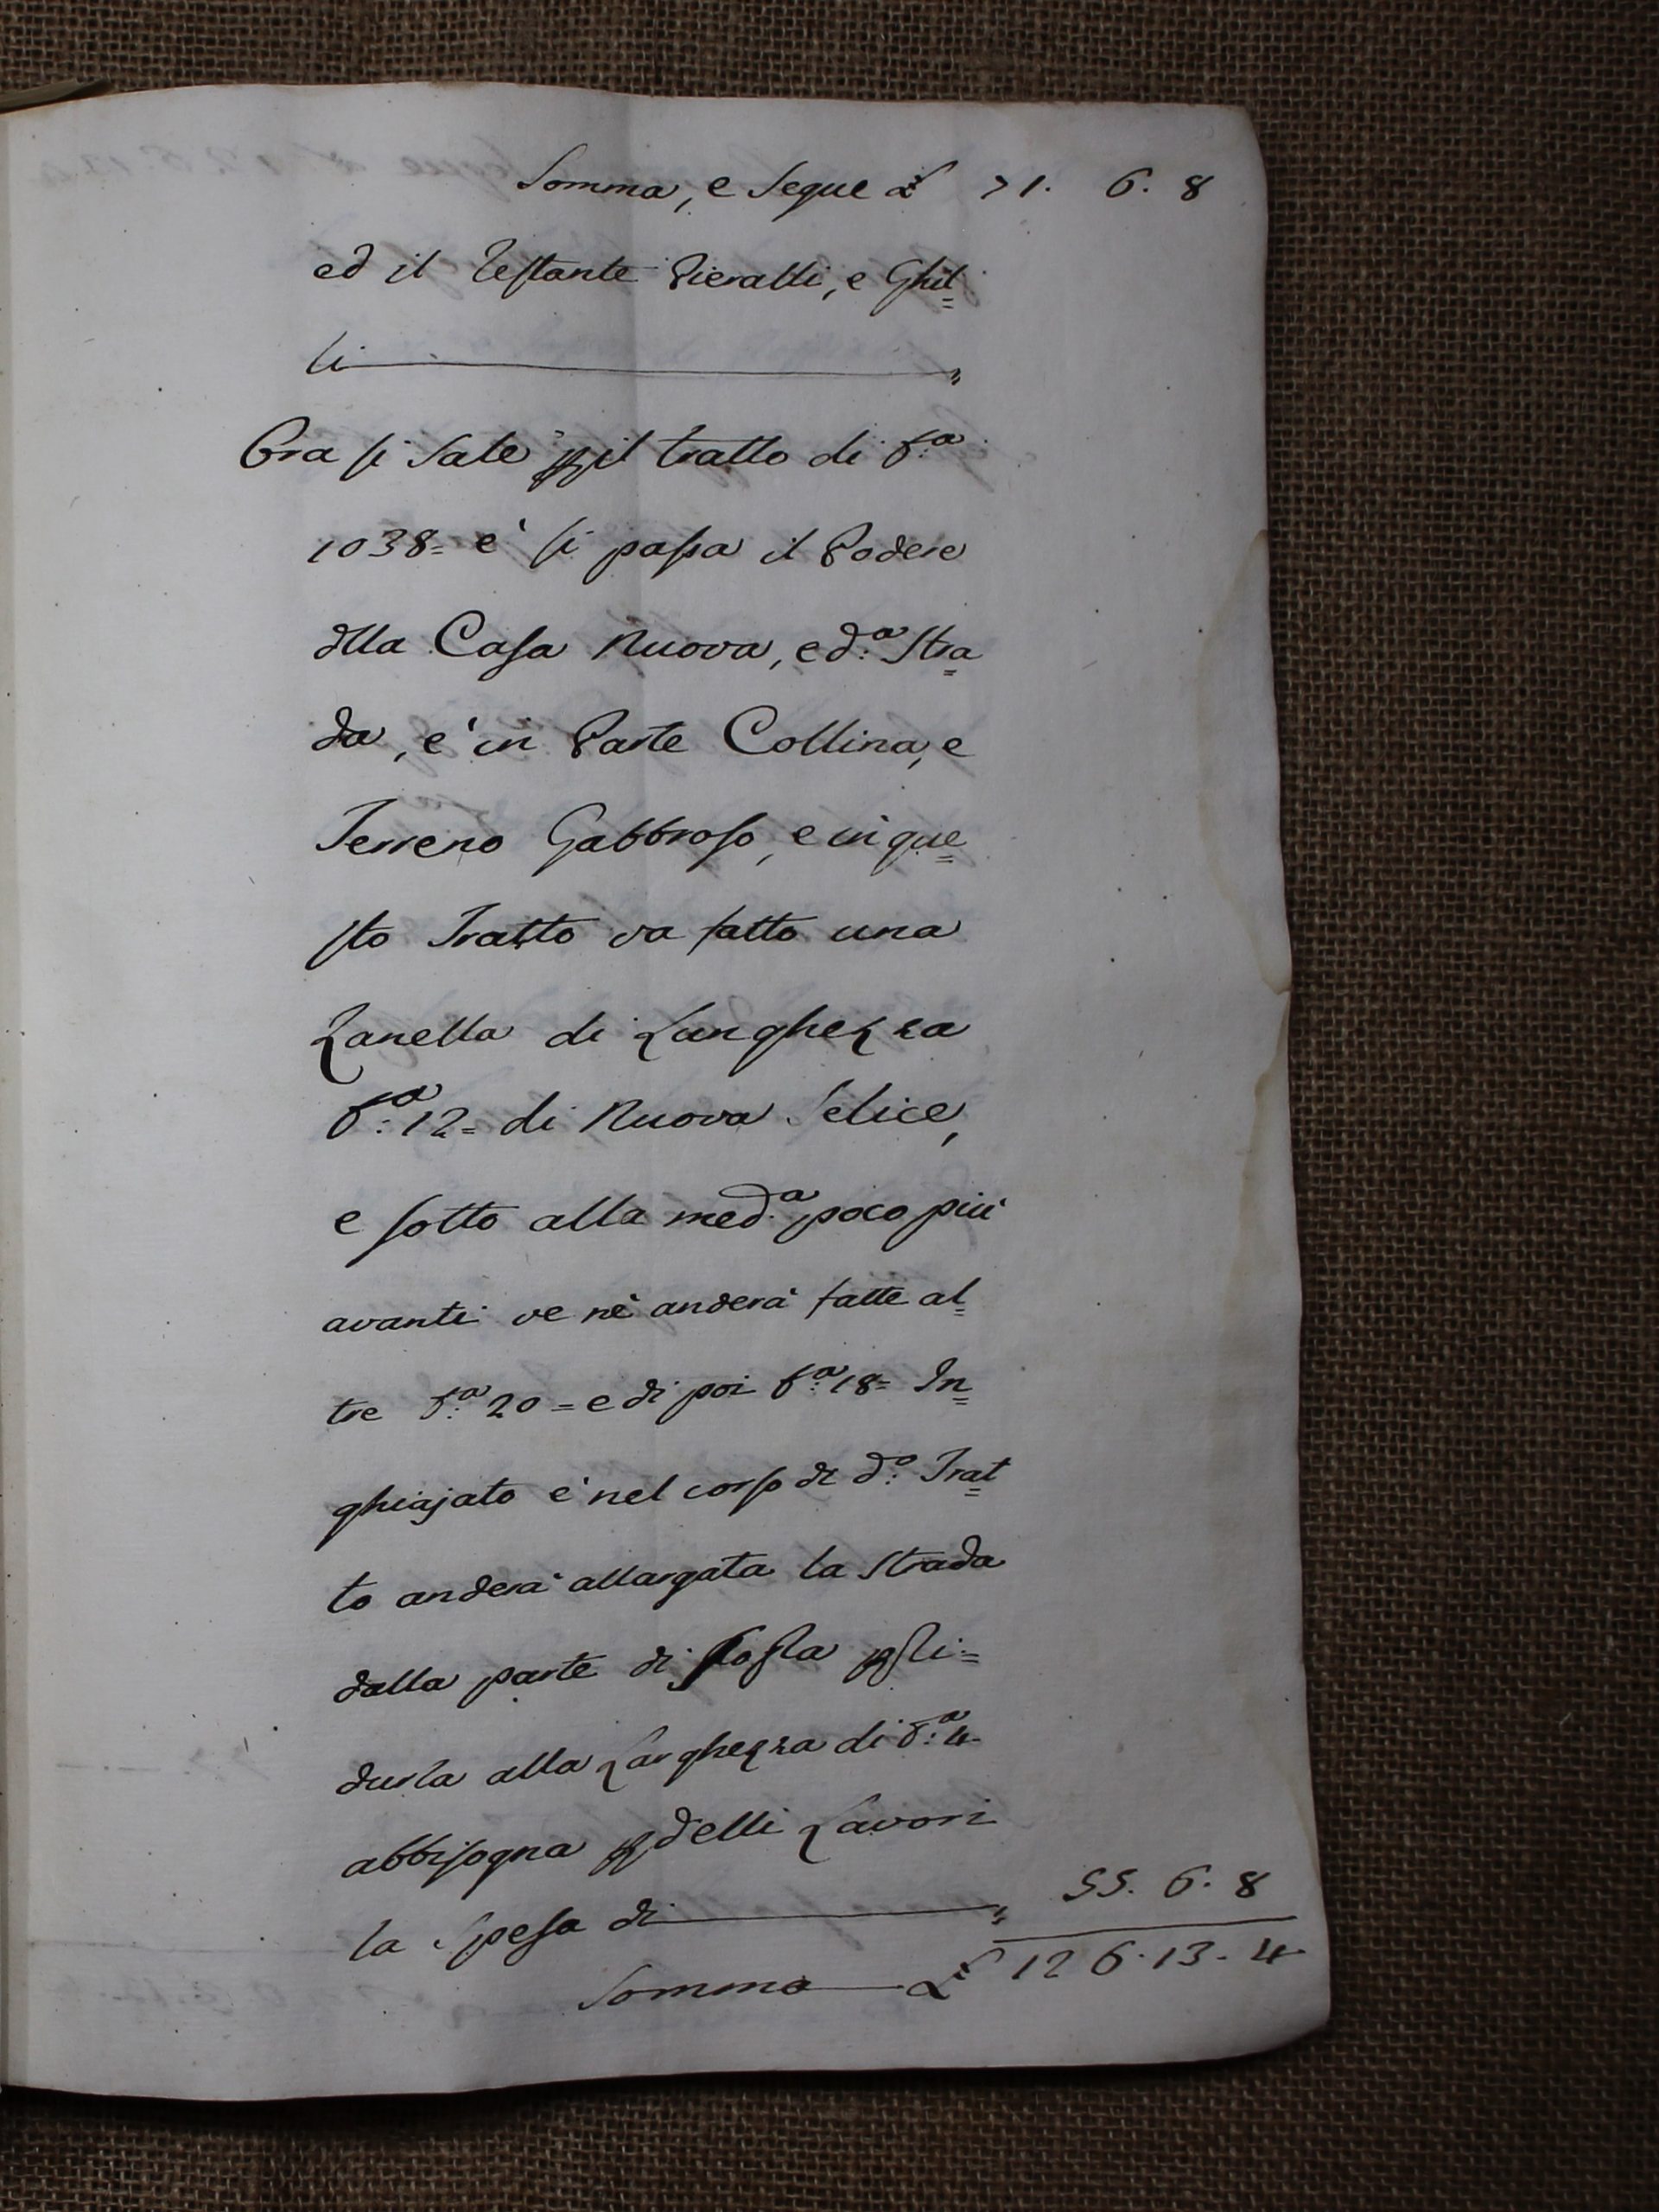 Somma, e Segue £ 71. 6. 8
ed il Restante Pieralli, e Ghil=
li
Ora si Sale p il tratto di b.a
1038= e' si passa il Podere
dlla Casa Nuova, e d:a Stra=
da, e' in Parte Collina, e
Terreno Gabbroso, e in que=
sto Tratto va fatto una
Zanella di Lunghezza
b:a 12= di Nuova Selice,
e sotto alla med.a poco più
avanti ve ne anderà fatte al=
tre b:a 20= e di poi b:a 18= In=
ghiajato e' nel corso di d:o Trat=
to anderà allargata la Strada
dalla parte di Fossa p ri=
durla alla Larghezza di b:a 4
abbisogna p delli Lavori
la Spesa di 55. 6. 8
Somma £ 126. 13. 4